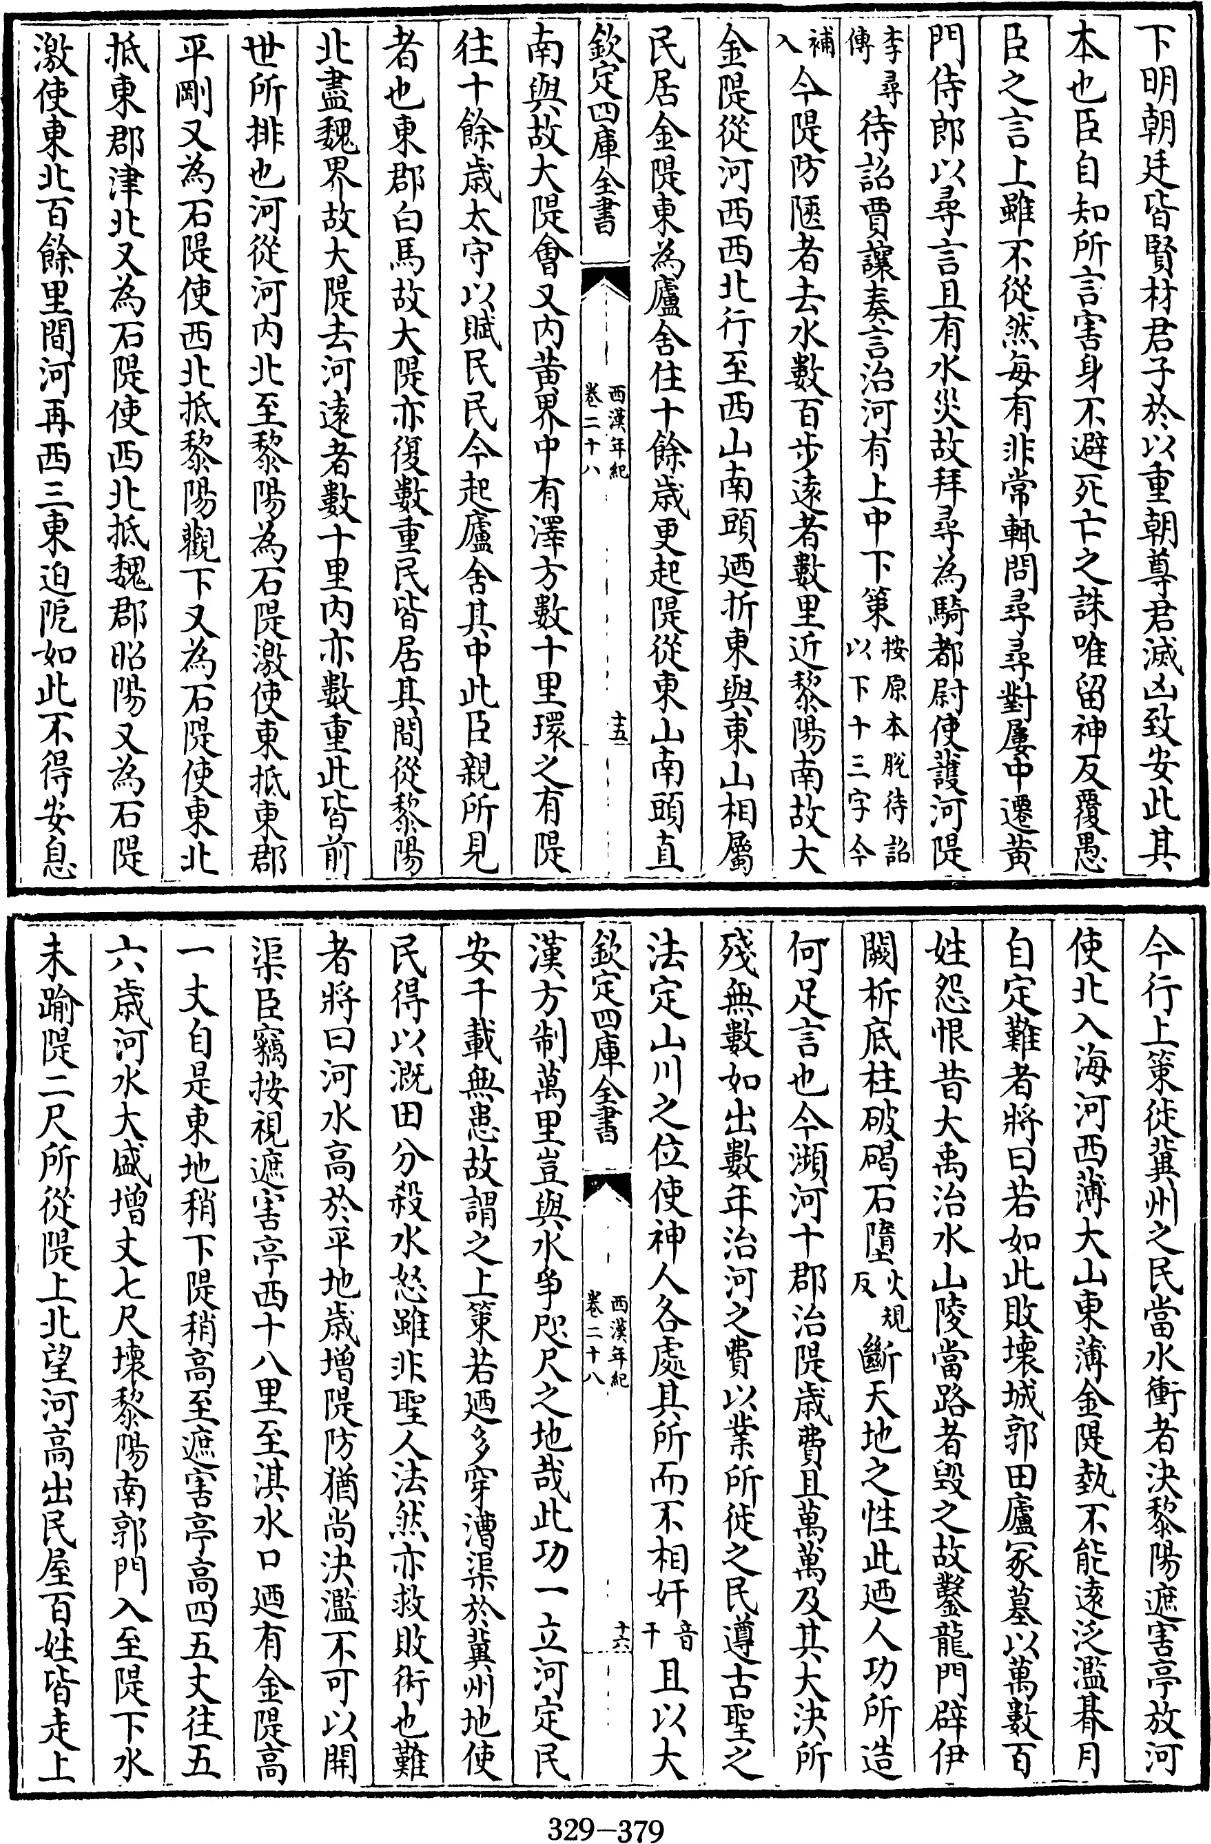 下明朝廷皆賢材君子於以重朝尊君滅凶致安此其
本也臣自知所言害身不避死亡之誅唯留神反覆愚
臣之言上雖不從然每有非常輒問尋尋對屢中遷黃
門侍郎以尋言且有水災故拜尋為騎都尉使護河隄
李尋
傳
待詔賈讓奏言治河有上中下策
按原本脫待詔
以下十三字今
補
入
今隄防陿者去水數百步遠者數里近黎陽南故大
金隄從河西西北行至西山南頭廼折東與東山相屬
民居金隄東為廬舍住十餘歲更起隄從東山南頭直
欽定四庫全書
西漢年紀
卷二十八
十五
南與故大隄會又內黃界中有澤方數十里環之有隄
往十餘歲太守以賦民民今起廬舍其中此臣親所見
者也東郡白馬故大隄亦復數重民皆居其間從黎陽
北盡魏界故大隄去河遠者數十里內亦數重此皆前
世所排也河從河內北至黎陽為石隄激使東抵東郡
平剛又為石隄使西北抵黎陽觀下又為石隄使東北
抵東郡津北又為石隄使西北抵魏郡昭陽又為石隄
激使東北百餘里間河再西三東迫阸如此不得安息
今行上策徙冀州之民當水衝者決黎陽遮害亭放河
使北入海河西薄大山東薄金隄埶不能遠泛濫朞月
自定難者將曰若如此敗壞城郭田廬冢墓以萬數百
姓怨恨昔大禹治水山陵當路者毀之故鑿龍門辟伊
闕析底柱破碣石墮
火規
反
斷天地之性此廼人功所造
何足言也今瀕河十郡治隄歲費且萬萬及其大決所
殘無數如出數年治河之費以業所徙之民遵古聖之
法定山川之位使神人各處其所而不相奸
音
干
且以大
欽定四庫全書
西漢年紀
卷二十八
十六
漢方制萬里豈與水爭咫尺之地哉此功一立河定民
安千載無患故謂之上策若廼多穿漕渠於冀州地使
民得以溉田分殺水怒雖非聖人法然亦救敗術也難
者將曰河水高於平地歲增隄防猶尚決濫不可以開
渠臣竊按視遮害亭西十八里至淇水口廼有金隄高
一丈自是東地稍下隄稍高至遮害亭高四五丈往五
六歲河水大盛增丈七尺壞黎陽南郭門入至隄下水
未踰隄二尺所從隄上北望河高出民屋百姓皆走上
329–379